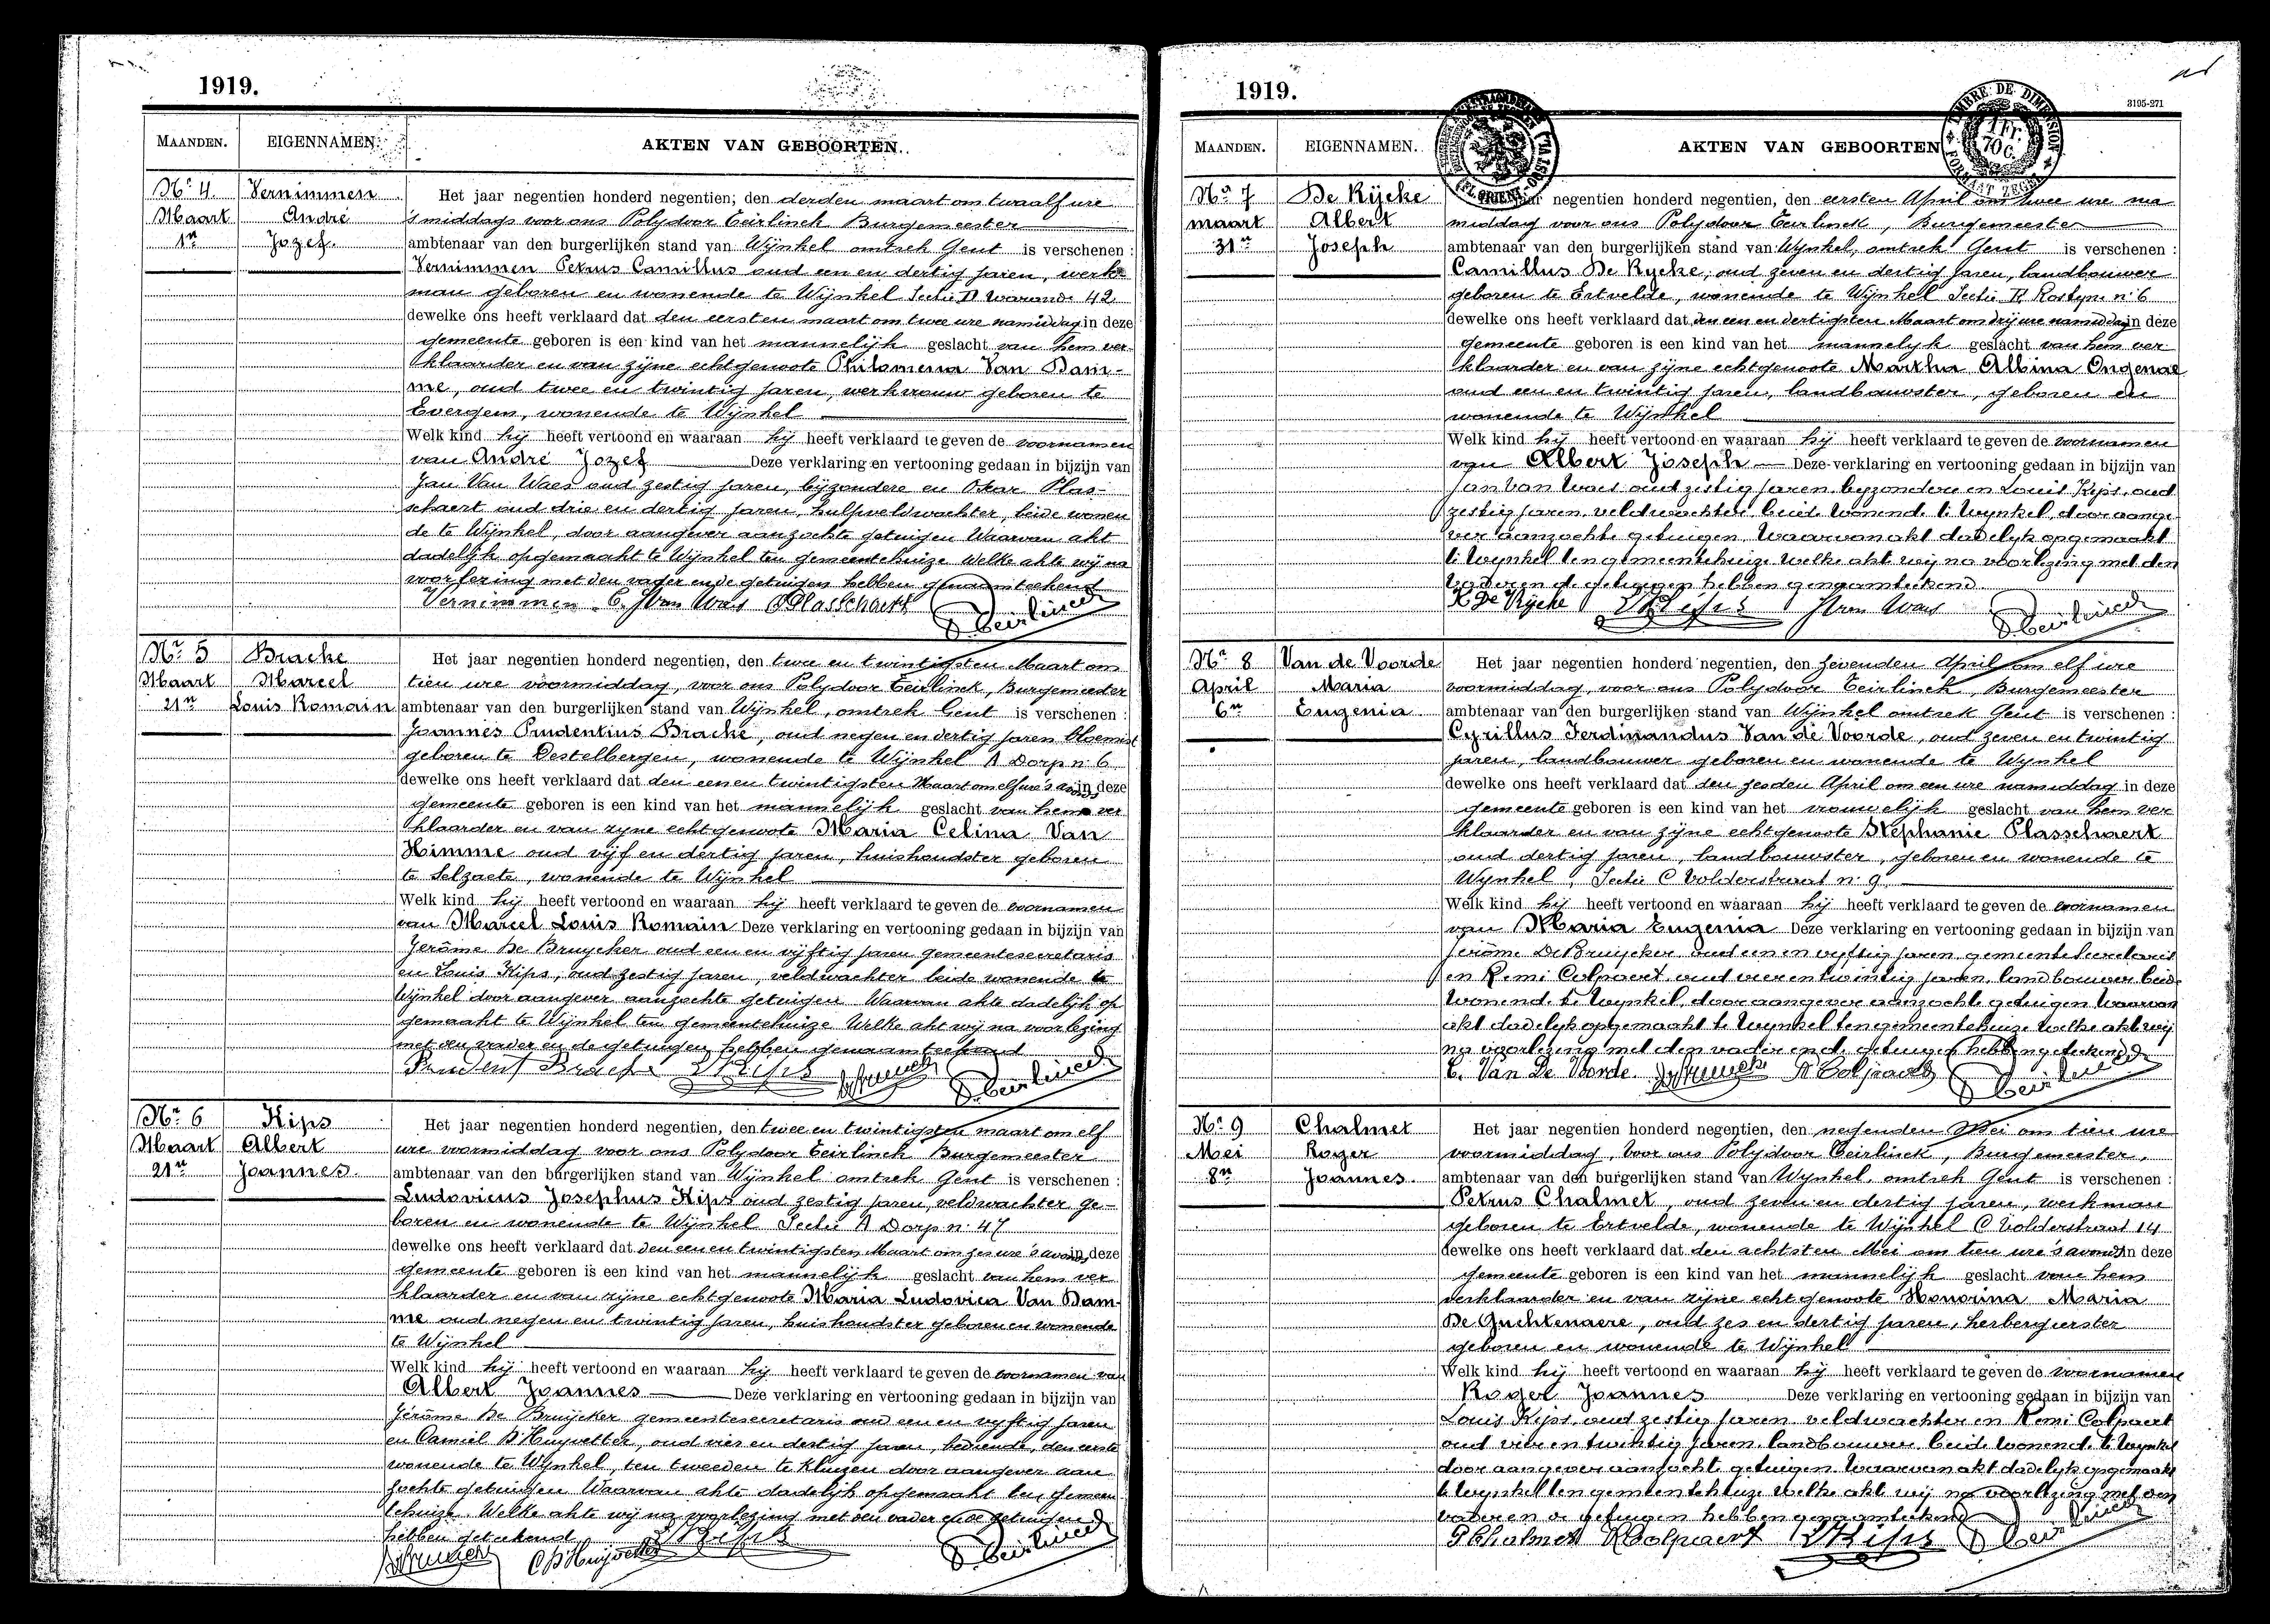 1919.
MAANDEN. EIGENNAMEN. AKTEN VAN GEBOORTEN.
Nr 4. Vernimmen Het jaar negentien honderd negentien, den derden maart om twaalf ure
Maart André 's middags voor ons Polydoor Teirlinck Burgemeester
1n Jozef. ambtenaar van den burgerlijken stand van Wijnkel omtrek Gent is verschenen :
Vernimmen Petrus Camillus oud een en dertig jaren, werk-
man geboren en wonende te Wijnkel Sectie D Warande 42
dewelke ons heeft verklaard dat den eersten maart om twee ure namiddag in deze
gemeente geboren is een kind van het mannelijk geslacht van hem ver-
klaarder en van zijne echtgenoote Philomena Van Dam-
me, oud twee en twintig jaren, werkvrouw geboren te
Evergem, wonende te Wijnkel
Welk kind hij heeft vertoond en waaraan hij heeft verklaard te geven de voornamen
van André Jozef Deze verklaring en vertooning gedaan in bijzijn van
Jan Van Waes oud zestig jaren, bijzondere en Oskar Plas-
schaert oud drie en dertig jaren, hulpveldwachter, beide wonen
de te Wijnkel, door aangever aanzochte getuigen Waarvan akt
dadelijk opgemaakt te Wijnkel ten gemeentehuize Welke akte wij na
voorlezing met den vader en de getuigen hebben genaamteekend
Vernimmen C. J Van Waes O Plasschaert P. Teirlinck
Nr 5 Bracke Het jaar negentien honderd negentien, den twee en twintigsten Maart om
Maart Marcel tien ure voormiddag, voor ons Polydoor Teirlinck, Burgemeester
21n Louis Romain ambtenaar van den burgerlijken stand van Wijnkel, omtrek Gent is verschenen :
Joannes Prudentius Bracke, oud negen en dertig jaren bloemist
geboren te Destelbergen, wonende te Wijnkel A Dorp n: 6
dewelke ons heeft verklaard dat den een en twintigsten Maart om elf ure 's avonds in deze
gemeente geboren is een kind van het mannelijk geslacht van hem ver
klaarder en van zyne echtgenoote Maria Celina Van
Himme oud vijf en dertig jaren, huishoudster geboren
te Selzaete, wonende te Wijnkel
Welk kind hij heeft vertoond en waaraan hij heeft verklaard te geven de voornamen
van Marcel Louis Romain Deze verklaring en vertooning gedaan in bijzijn van
Jerôme De Bruycker oud een en vijftig jaren gemeentesecretaris
en Louis Kips, oud zestig jaren, veldwachter beide wonende te
Wijnkel door aangever aanzochte getuigen Waarvan akte dadelijk op
gemaakt te Wijnkel ten gemeentehuize Welke akt wij na voorlezing
met den vader en de getuigen hebben genaamteekend
Prudent Bracke L Kips P. Teirlinck
Nr 6 Kips Het jaar negentien honderd negentien, den twee en twintigsten maart om elf
Maart Albert ure voormiddag voor ons Polydoor Teirlinck Burgemeester
21n Joannes. ambtenaar van den burgerlijken stand van Wijnkel omtrek Gent is verschenen :
Ludovicus Josephus Kips oud zestig jaren, veldwachter ge-
boren en wonende te Wijnkel Sectie A Dorp n: 47
dewelke ons heeft verklaard dat den een en twintigsten Maart om zes ure 's avonds in deze
gemeente geboren is een kind van het mannelijk geslacht van hem ver
klaarder en van zijne echtgenoote Maria Ludovica Van Dam-
me oud negen en twintig jaren, huishoudster geboren en wonende
te Wijnkel
Welk kind hij heeft vertoond en waaraan hij heeft verklaard te geven de voornamen van
Albert Joannes Deze verklaring en vertooning gedaan in bijzijn van
Jérôme De Bruijcker gemeentesecretaris oud een en vyftig jaren
en Camiel D'Huyvetter, oud vier en dertig jaren, bediende, den eerste
wonende te Wijnkel, ten tweeden te Kluizen door aangever aan
zochte getuigen Waarvan akte dadelijk opgemaakt ten gemeen
tehuize. Welke akte wij na voorlezing met den vader en de getuigen
hebben geteekend L Kips
C D'Huyvetter P. Teirlinck
1919. 3195-271
TIMBRE DE DIMENSION 1 Fr. 70 C. FORMAAT ZEGEL
MAANDEN. EIGENNAMEN. AKTEN VAN GEBOORTEN
Nr 7 De Rijcke jaar negentien honderd negentien, den eersten April om twee ure na
maart Albert middag voor ons Polydoor Teirlinck, Burgemeester
31n Joseph ambtenaar van den burgerlijken stand van Wijnkel, omtrek Gent is verschenen :
Camillus De Rycke, oud zeven en dertig jaren, landbouwer
geboren te Ertvelde, wonende te Wijnkel Sectie B Rostyne n: 6
dewelke ons heeft verklaard dat den een en dertigsten Maart om drij ure namiddag in deze
gemeente geboren is een kind van het mannelyk geslacht van hem ver-
klaarder en van zijne echtgenoote Martha Albina Ongenae
oud een en twintig jaren, landbouwster, geboren en
wonende te Wijnkel
Welk kind hij heeft vertoond en waaraan hij heeft verklaard te geven de voornamen
van Albert Joseph Deze verklaring en vertooning gedaan in bijzijn van
Jan Van Waes oud zestig jaren byzondere en Louis Kips, oud
zestig jaren veldwachter beide wonend te Wynkel, door aange
ver aanzochte getuigen. Waarvan akt dadelyk opgemaakt
te Wynkel ten gemeentehuize welke akt wij na voorlezing met den
vader en de getuigen hebben genaamteekend
K De Rijcke L Kips J Van Waes P. Teirlinck
Nr 8 Van de Voorde Het jaar negentien honderd negentien, den zevenden April om elf ure
April Maria voormiddag, voor ons Polydoor Teirlinck, Burgemeester
6n Eugenia ambtenaar van den burgerlijken stand van Wijnkel omtrek Gent is verschenen :
Cyrillus Ferdinandus Van de Voorde, oud zeven en twintig
jaren, landbouwer geboren en wonende te Wynkel
dewelke ons heeft verklaard dat den zesden April om een ure namiddag in deze
gemeente geboren is een kind van het vrouwelijk geslacht van hem ver
klaarder en van zijne echtgenoote Stephanie Plasschaert
oud dertig jaren, landbouwster, geboren en wonende te
Wynkel, Sectie C Volderstraat n: 9
Welk kind hij heeft vertoond en waaraan hij heeft verklaard te geven de voornamen
van Maria Eugenia Deze verklaring en vertooning gedaan in bijzijn van
Jerôme De Bruijcker oud een en vyftig jaren gemeentesecretaris
en Remi Colpaert oud vier en twintig jaren, landbouwer beide
wonend te Wynkel, door aangever aanzocht getuigen Waarvan
akt dadelyk opgemaakt te Wynkel ten gemeentehuize welke akt wij
na voorlezing met den vader en de getuigen hebben geteekend
C. Van De Voorde R Colpaert P. Teirlinck
Nr 9 Chalmet Het jaar negentien honderd negentien, den negenden Mei om tien ure
Mei Roger voormiddag, voor ons Polydoor Teirlinck, Burgemeester,
8n Joannes. ambtenaar van den burgerlijken stand van Wynkel, omtrek Gent is verschenen :
Petrus Chalmet, oud zeven en dertig jaren, werkman
geboren te Ertvelde, wonende te Wijnkel C Volderstraat 14
dewelke ons heeft verklaard dat den achtsten Mei om tien ure 's avonds in deze
gemeente geboren is een kind van het mannelijk geslacht van hem
verklaarder en van zijne echtgenoote Honorina Maria
De Guchtenaere, oud zes en dertig jaren, herbergierster
geboren en wonende te Wijnkel
Welk kind hij heeft vertoond en waaraan hij heeft verklaard te geven de voornamen
Roger Joannes Deze verklaring en vertooning gedaan in bijzijn van
Louis Kips, oud zestig jaren veldwachter en Remi Colpaert
oud vier en twintig jaren. landbouwer beide wonend te Wynkel
door aangever aanzocht getuigen. Waarvan akt dadelyk opgemaakt
te Wynkel ten gemeentehuize welke akt wij na voorlezing met den
vader en de getuigen hebben genaamteekend
P Chalmet R Colpaert L Kips P. Teirlinck